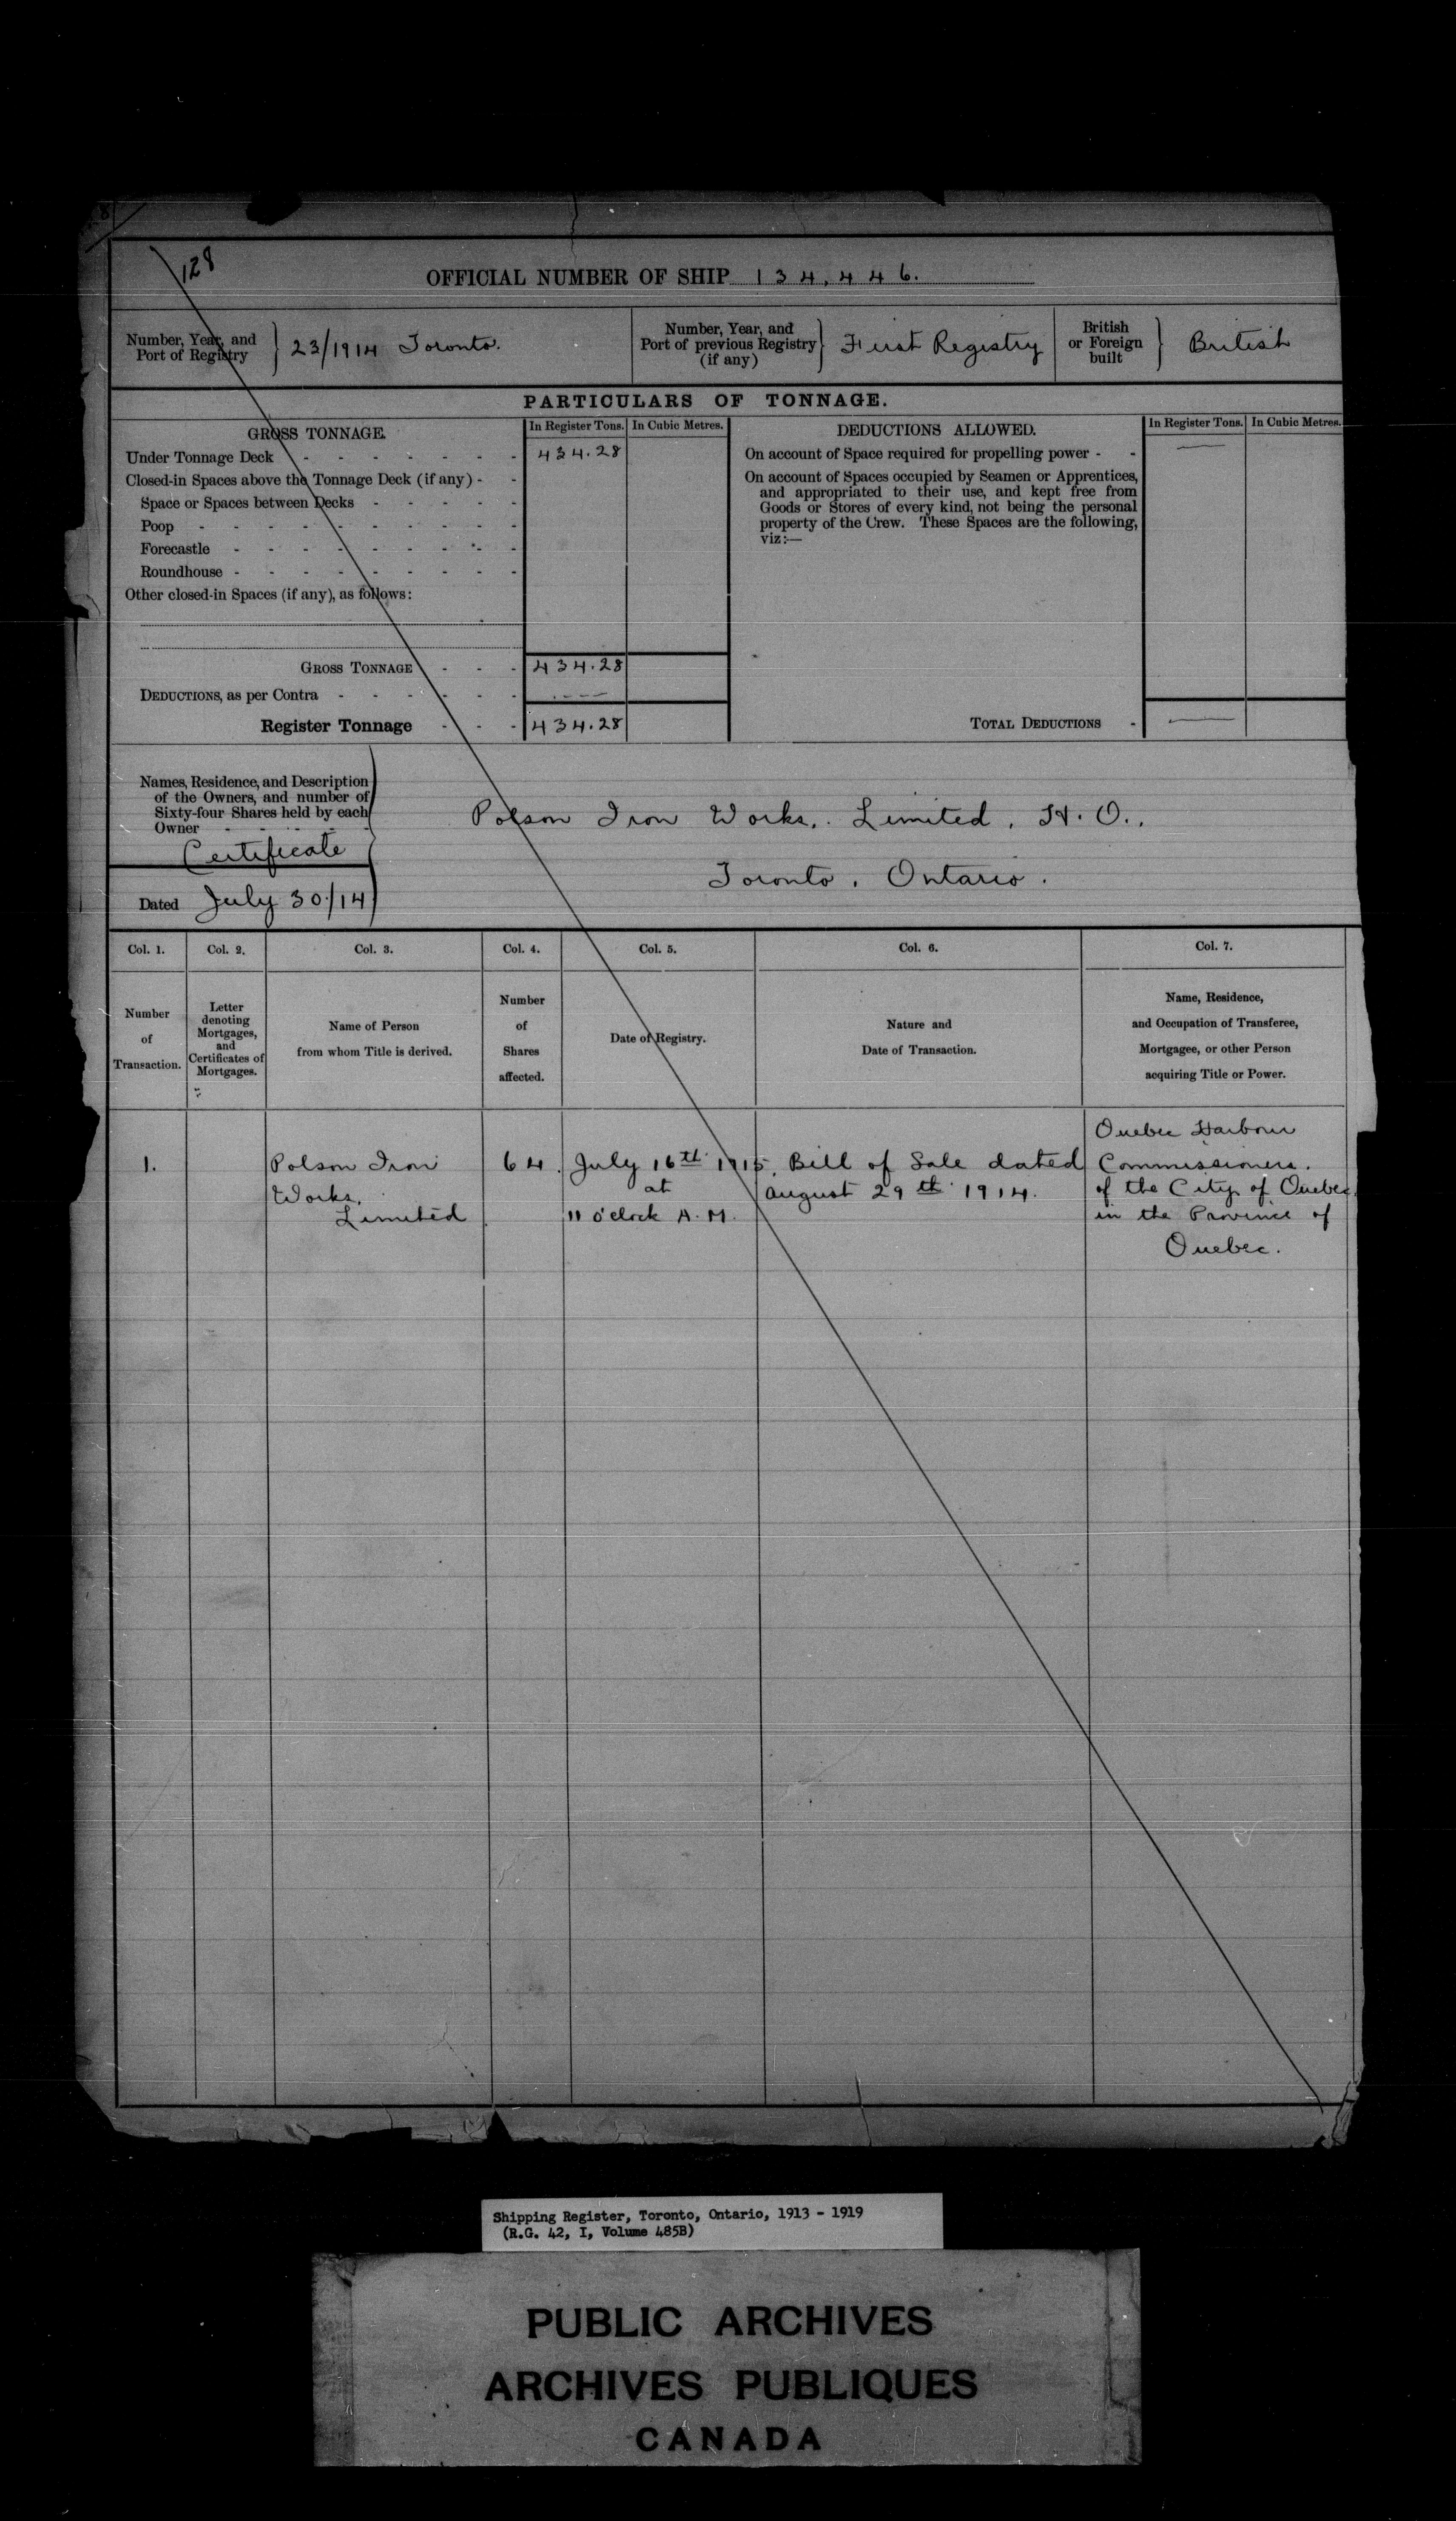 128
OFFICIAL NUMBER OF SHIP 134,446.
Number, Year, and Port of Registry } 23/1914 Toronto.
Number, Year, and Port of previous Registry (if any) } First Registry
British or Foreign built } British
PARTICULARS OF TONNAGE.
GROSS TONNAGE. In Register Tons. In Cubic Metres.
Under Tonnage Deck - - - - - - - 434.28
Closed-in Spaces above the Tonnage Deck (if any) - -
Space or Spaces between Decks - - - - -
Poop - - - - - - - - - -
Forecastle - - - - - - - - -
Roundhouse - - - - - - - - -
Other closed-in Spaces (if any), as follows:
GROSS TONNAGE - - - 434.28
DEDUCTIONS, as per Contra - - - - - - ----
Register Tonnage - - - 434.28
DEDUCTIONS ALLOWED. In Register Tons. In Cubic Metres.
On account of Space required for propelling power - - —
On account of Spaces occupied by Seamen or Apprentices,
and appropriated to their use, and kept free from
Goods or Stores of every kind, not being the personal
property of the Crew. These Spaces are the following,
viz:—
TOTAL DEDUCTIONS - —
Names, Residence, and Description
of the Owners, and number of
Sixty-four Shares held by each
Owner - - - - -
Certificate
Dated July 30/14
Polson Iron Works, Limited, H.O.,
Toronto, Ontario.
Col. 1. Col. 2. Col. 3. Col. 4. Col. 5. Col. 6. Col. 7.
Number
of
Transaction.
Letter
denoting
Mortgages,
and
Certificates of
Mortgages.
Name of Person
from whom Title is derived.
Number
of
Shares
affected.
Date of Registry.
Nature and
Date of Transaction.
Name, Residence,
and Occupation of Transferee,
Mortgagee, or other Person
acquiring Title or Power.
1.
Polson Iron
Works,
Limited
64.
July 16th 1915,
at
11 o'clock A.M.
Bill of Sale dated
August 29th 1914.
Quebec Harbour
Commissioners.
of the City of Quebec
in the Province of
Quebec.
Shipping Register, Toronto, Ontario, 1913 - 1919
(R.G. 42, I, Volume 485B)
PUBLIC ARCHIVES
ARCHIVES PUBLIQUES
CANADA